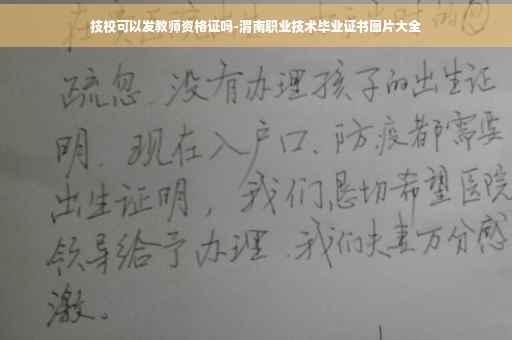 技校可以发教师资格证吗-渭南职业技术毕业证书图片大全
疏忽、没有办理孩子的出生证
明、现在入户口、防疫都需要
出生证明，我们恳切希望医院
领导给予办理、我们夫妻万分感
激。